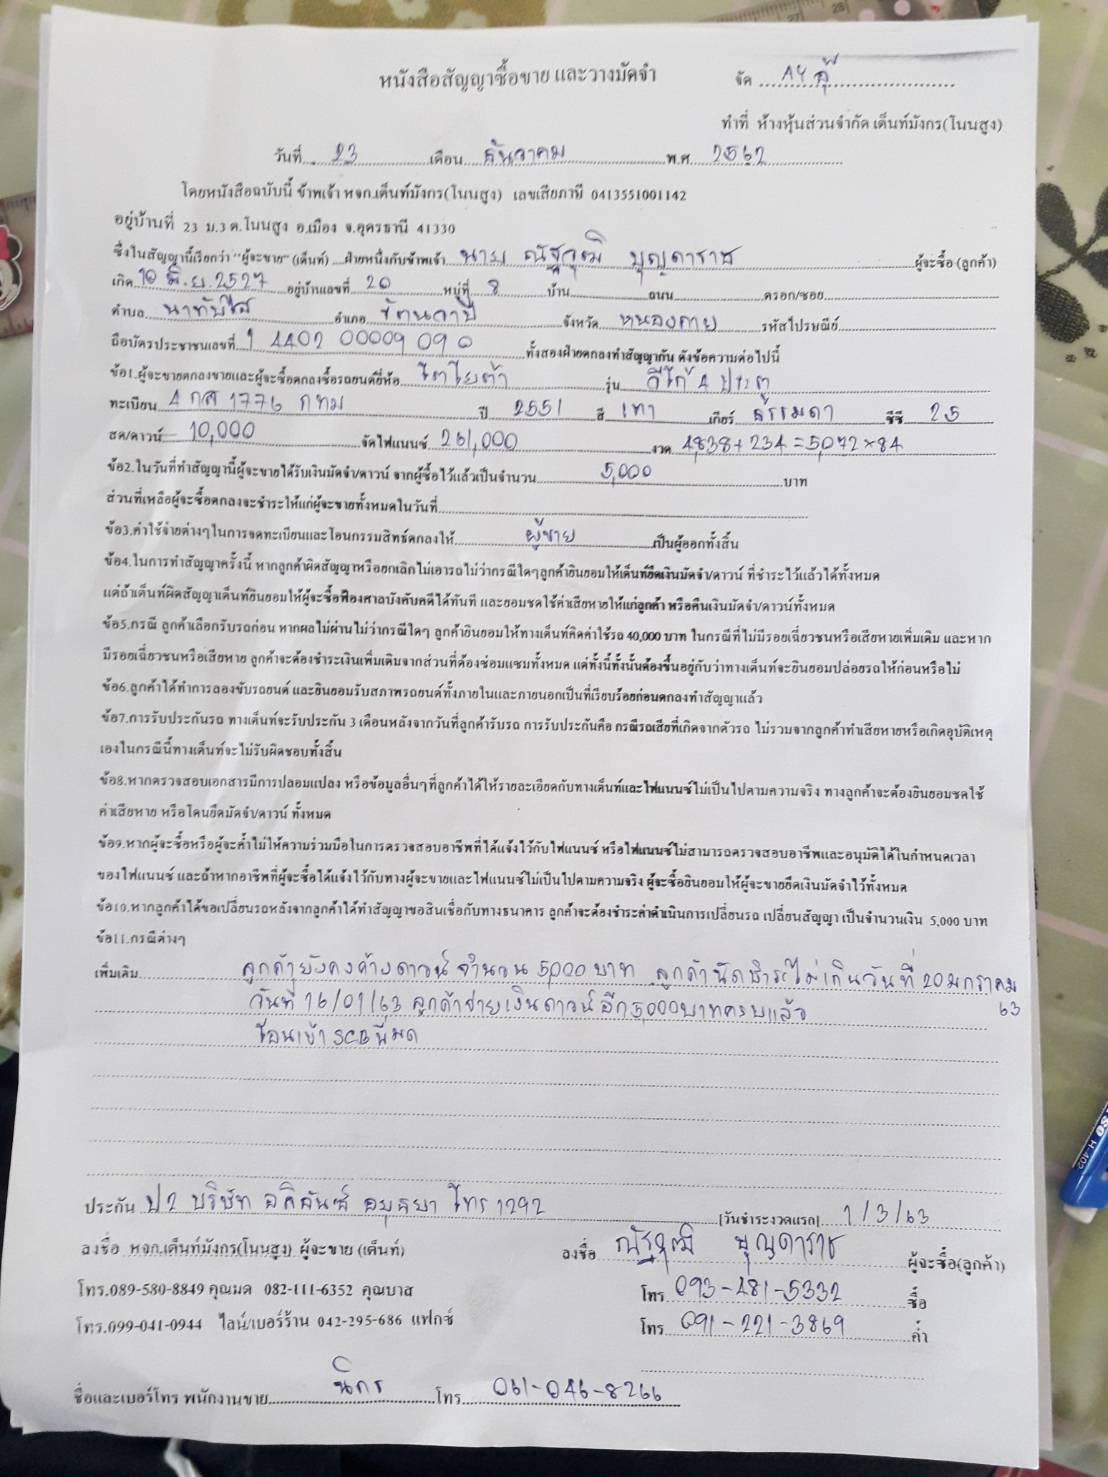 หนังสือสัญญาซื้อขาย และวางมัดจำ
จัด
ทำที่ ห้างหุ้นส่วนจำกัด เต็นท์มังกร(โนนสูง)
วันที่ 23 เดือน ธันวาคม พ.ศ 2562
โดยหนังสือฉบับนี้ ข้าพเจ้า หจก.เต็นท์มังกร(โนนสูง) เลขเสียภาษี 0413551001142
อยู่บ้านที่ 23 ม.3 ต.โนนสูง อ.เมือง จ.อุดรธานี 41330
ซึ่งในสัญญานี้เรียกว่า "ผู้จะขาย" (เต็นท์) ฝ่ายหนึ่งกับข้าพเจ้า นาย ณัฐวุฒิ บุญดาราช ผู้จะซื้อ (ลูกค้า)
เกิด 10 มิ.ย. 2527 อยู่บ้านเลขที่ 20 หมู่ที่ 8 บ้าน ถนน ตรอก/ซอย
ตำบล นาทับไฮ อำเภอ รัตนวาปี จังหวัด หนองคาย รหัสไปรษณีย์
ถือบัตรประชาชนเลขที่ 1 4402 00009 09 0 ทั้งสองฝ่ายตกลงทำสัญญากัน ดังข้อความต่อไปนี้
ข้อ1.ผู้จะขายตกลงขายและผู้จะซื้อตกลงซื้อรถยนต์ยี่ห้อ โตโยต้า รุ่น วีโก้ 4 ประตู
ทะเบียน 4 กส 1776 กทม ปี 2551 สี เทา เกียร์ ธรรมดา ซีซี 25
สด/ดาวน์ 10,000 จัดไฟแนนซ์ 261,000 งวด 4,838 + 234 = 5,072 × 84
ข้อ2.ในวันที่ทำสัญญานี้ผู้จะขายได้รับเงินมัดจำ/ดาวน์ จากผู้ซื้อไว้แล้วเป็นจำนวน 5,000 บาท
ส่วนที่เหลือผู้จะซื้อตกลงจะชำระให้แก่ผู้จะขายทั้งหมดในวันที่
ข้อ3.ค่าใช้จ่ายต่างๆในการจดทะเบียนและโอนกรรมสิทธ์ตกลงให้ ผู้ขาย เป็นผู้ออกทั้งสิ้น
ข้อ4.ในการทำสัญญาครั้งนี้ หากลูกค้าผิดสัญญาหรือยกเลิกไม่เอารถไม่ว่ากรณีใดๆลูกค้ายินยอมให้เต็นท์ยึดเงินมัดจำ/ดาวน์ ที่ชำระไว้แล้วได้ทั้งหมด
แต่ถ้าเต็นท์ผิดสัญญาเต็นท์ยินยอมให้ผู้จะซื้อฟ้องศาลบังคับคดีได้ทันที และยอมชดใช้ค่าเสียหายให้แก่ลูกค้า หรือคืนเงินมัดจำ/ดาวน์ทั้งหมด
ข้อ5.กรณี ลูกค้าเลือกรับรถก่อน หากผลไม่ผ่านไม่ว่ากรณีใดๆ ลูกค้ายินยอมให้ทางเต็นท์คิดค่าใช้รถ 40,000 บาท ในกรณีที่ไม่มีรอยเฉี่ยวชนหรือเสียหายเพิ่มเติม และหาก
มีรอยเฉี่ยวชนหรือเสียหาย ลูกค้าจะต้องชำระเงินเพิ่มเติมจากส่วนที่ต้องซ่อมแซมทั้งหมด แต่ทั้งนี้ทั้งนั้นต้องขึ้นอยู่กับว่าทางเต็นท์จะยินยอมปล่อยรถให้ก่อนหรือไม่
ข้อ6.ลูกค้าได้ทำการลองขับรถยนต์ และยินยอมรับสภาพรถยนต์ทั้งภายในและภายนอกเป็นที่เรียบร้อยก่อนตกลงทำสัญญาแล้ว
ข้อ7.การรับประกันรถ ทางเต็นท์จะรับประกัน 3 เดือนหลังจากวันที่ลูกค้ารับรถ การรับประกันคือ กรณีรถเสียที่เกิดจากตัวรถ ไม่รวมจากลูกค้าทำเสียหายหรือเกิดอุบัติเหตุ
เองในกรณีนี้ทางเต็นท์จะไม่รับผิดชอบทั้งสิ้น
ข้อ8.หากตรวจสอบเอกสารมีการปลอมแปลง หรือข้อมูลอื่นๆที่ลูกค้าได้ให้รายละเอียดกับทางเต็นท์และไฟแนนซ์ไม่เป็นไปตามความจริง ทางลูกค้าจะต้องยินยอมชดใช้
ค่าเสียหาย หรือโดนยึดมัดจำ/ดาวน์ ทั้งหมด
ข้อ9.หากผู้จะซื้อหรือผู้จะค้ำไม่ให้ความร่วมมือในการตรวจสอบอาชีพที่ได้แจ้งไว้กับไฟแนนซ์ หรือไฟแนนซ์ไม่สามารถตรวจสอบอาชีพและอนุมัติได้ในกำหนดเวลา
ของไฟแนนซ์ และถ้าหากอาชีพที่ผู้จะซื้อได้แจ้งไว้กับทางผู้จะขายและไฟแนนซ์ไม่เป็นไปตามความจริง ผู้จะซื้อยินยอมให้ผู้จะขายยึดเงินมัดจำไว้ทั้งหมด
ข้อ10.หากลูกค้าได้ขอเปลี่ยนรถหลังจากลูกค้าได้ทำสัญญาขอสินเชื่อกับทางธนาคาร ลูกค้าจะต้องชำระค่าดำเนินการเปลี่ยนรถ เปลี่ยนสัญญา เป็นจำนวนเงิน 5,000 บาท
ข้อ11.กรณีต่างๆ
เพิ่มเติม ลูกค้ายังคงค้างดาวน์ จำนวน 5,000 บาท ลูกค้านัดชำระไม่เกินวันที่ 20 มกราคม 63
วันที่ 16/01/63 ลูกค้าจ่ายเงินดาวน์อีก 5,000 บาทครบแล้ว
โอนเข้า SCB พี่มด
ประกัน ป2 บริษัท อลิอันซ์ อยุธยา โทร 1292 [วันชำระงวดแรก] 1/3/63
ลงชื่อ หจก.เต็นท์มังกร(โนนสูง) ผู้จะขาย (เต็นท์) ลงชื่อ ณัฐวุฒิ บุญดาราช ผู้จะซื้อ(ลูกค้า)
โทร.089-580-8849 คุณมด 082-111-6352 คุณบาส โทร 093-481-5332 ซื้อ
โทร.099-041-0944 ไลน์/เบอร์ร้าน 042-295-686 แฟกซ์ โทร 091-221-3869 ค้ำ
ชื่อและเบอร์โทร พนักงานขาย นิกร โทร 061-046-8266